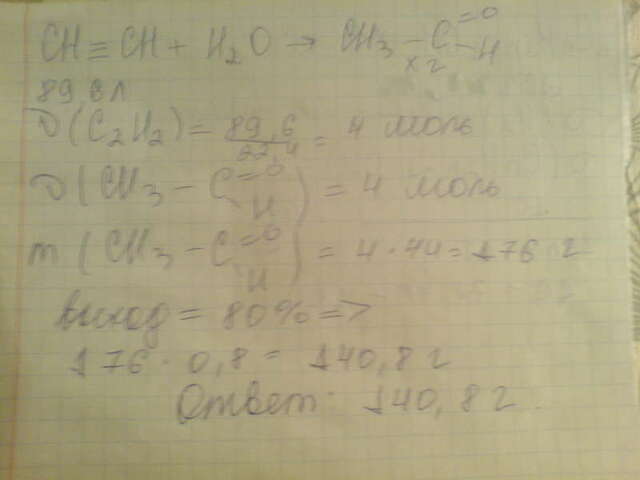 CH ≡ CH + H₂O → CH₃ - C =O - H
x г
89,6 л
ν(C₂H₂) = 89,6 / 22,4 = 4 моль
ν(CH₃ - C =O H) = 4 моль
m(CH₃ - C =O H) = 4 · 44 = 176 г
выход = 80% =>
176 · 0,8 = 140,8 г
Ответ: 140,8 г.